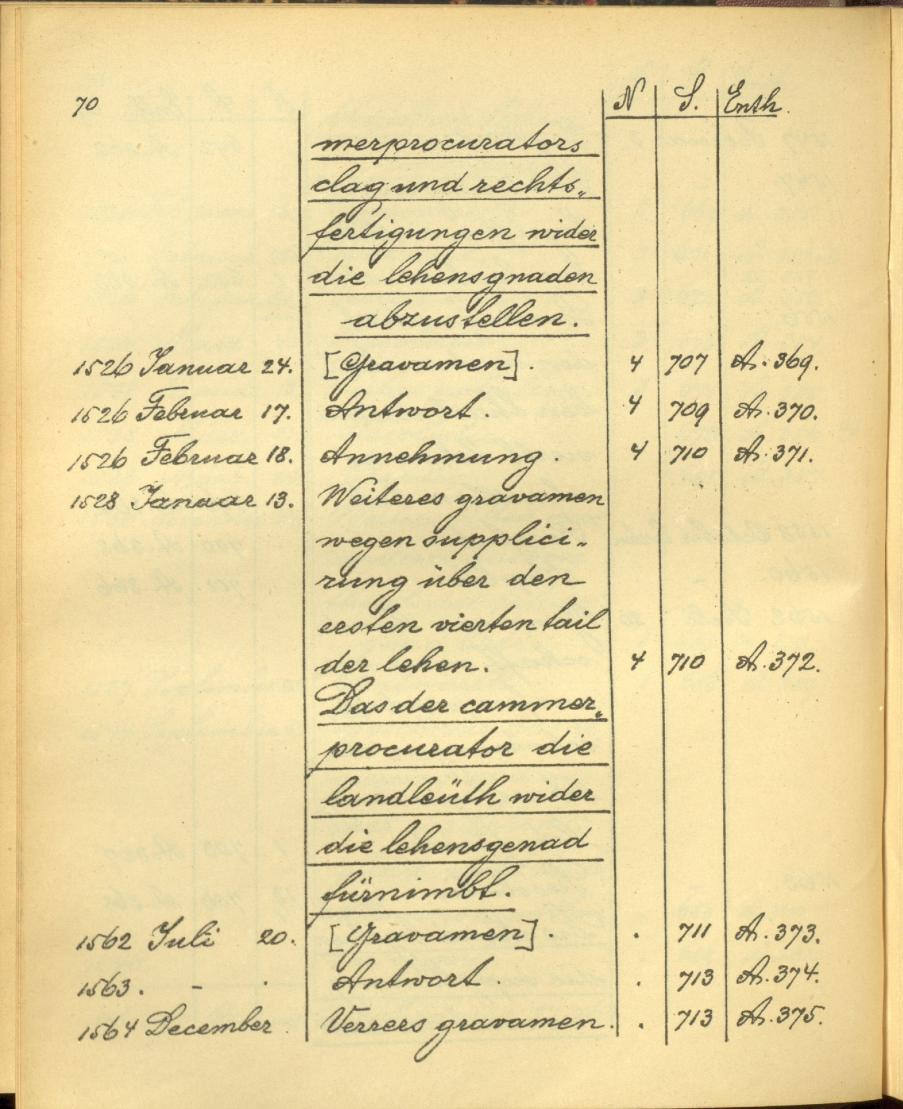 70 N S. Enth.
merprocurators
clag und rechts„
fertigungen wider
die lehensgnaden
abzustellen.
1526 Januar 24. [Gravamen]. 4 707 A. 369.
1526 Februar 17. Antwort. 4 709 A. 370.
1526 Februar 18. Annehmung. 4 710 A. 371.
1528 Januar 13. Weiteres gravamen
wegen supplici„
rung über den
ersten vierten tail
der lehen. 4 710 A. 372.
Das der cammer„
procurator die
landleüth wider
die lehensgenad
fürnimbt.
1562 Juli 20. [Gravamen]. . 711 A. 373.
1563. - . Antwort. . 713 A. 374.
1564 December. Verrers gravamen. . 713 A. 375.